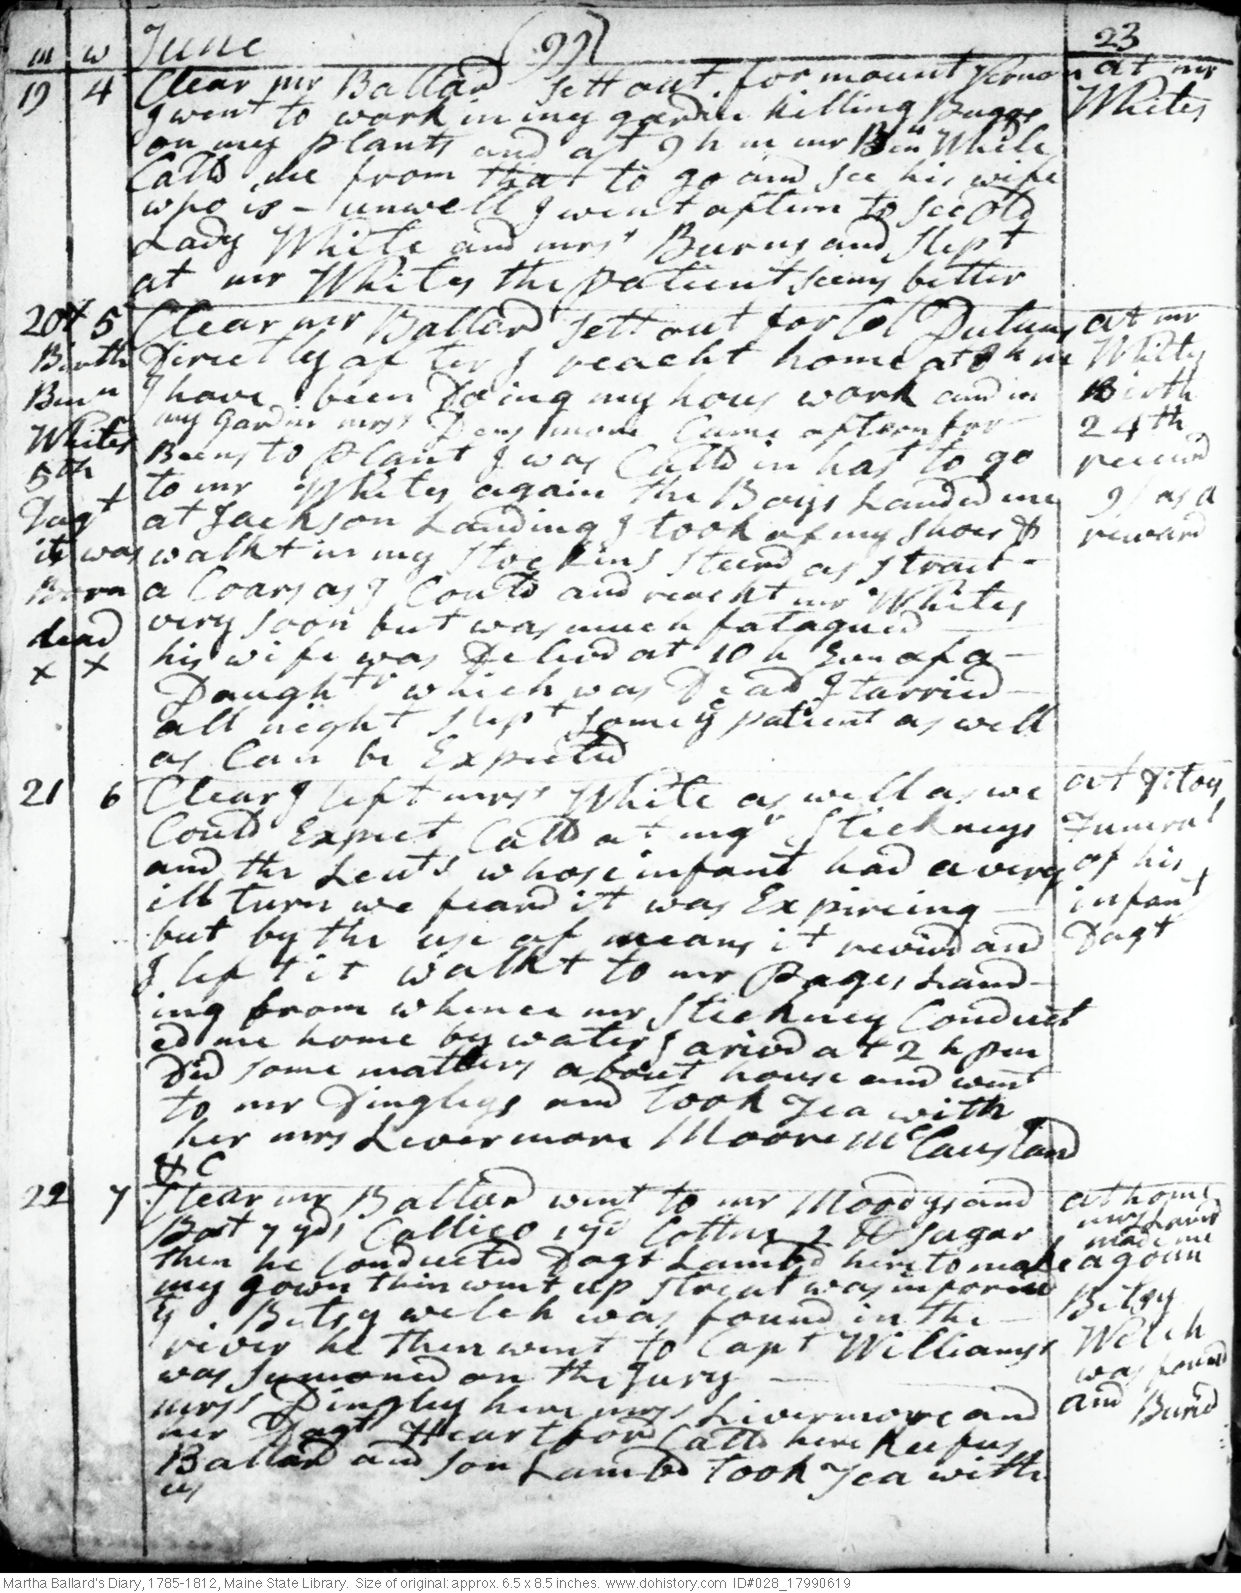 m w June (99) 23
19 4 Clear mr Ballard sett out for mount Vernon at mr
I went to work in my gardin killing Buggs Whites
on my plants and at 9 h m mr Ben White
Calld me from that to go and see his wife
who is - unwell I went aftern to see Old
Lady White and mrs Burns and slept
at mr Whites the patient seems better
20 5 Clear mr Ballard sett out for Col Dutuns at mr
Birth Directly after I reacht home at 8 h m Whits
Benn I have been Doing my hous work and in Birth
Whites my gardin mrs Densmore Came aftern for 24th
5th Beens to plant I was Calld in hast to go receivd
Dagt to mr Whites again the Boys Landed me 9/ as a
it was at Jackson Landing I took of my shoes & reward
Born walkt in my stockins steerd as strait -
dead a Coars as I Could and reacht mr Whites
x x very soon but was much fatagued
his wife was Delivd at 10 h Evn of a -
Daughtr which was Dead I tarried
all night slept some ye patient as well
as Can be Expected
21 6 Clear I left mrs White as well as we at ditoes
Could Expect Calld at mr Stickneys Funeral
and the Leuts whose infant had a very of his
ill turn we feard it was Expireing infant
but by the use of means it revivd and Dagt
I left it walkt to mr Pages Land-
ing from whence mr Stickney Conduct
ed me home by water I arivd at 2 h pm
Did some matters about house and went
to mr Dingleys and took Tea with
her mrs Livermore Moore McCausland
& C
22 7 Clear mr Ballard went to mr Moodys and at home.
Bot 7 yds Callico 1 yd Cotten 2 lb sugar mrs Lambd
then he Conducted Dagt Lambd here to make made me
my gown then went up streat was informd a goun
yt Betsy welch was found in the Betsy
river he then went to Capt Williamss Welch
was sumoned on the Jury was found
mrss Dingley here mrss Livermore and and Buried
her Dagt Heartford Calld here Rufus
Ballard and son Lambd took Tea with
us
Martha Ballard's Diary, 1785-1812, Maine State Library. Size of original: approx. 6.5 x 8.5 inches. www.dohistory.com ID#028_17990619